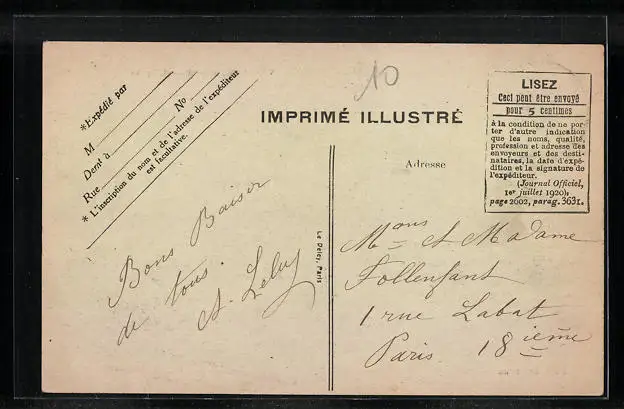 *Expédié par
M
Demt à No
Rue
* L'inscription du nom et de l'adresse de l'expéditeur
est facultative.
10
IMPRIMÉ ILLUSTRÉ
LISEZ
Ceci peut être envoyé
pour 5 centimes
à la condition de ne por-
ter d'autre indication
que les noms, qualité,
profession et adresse des
envoyeurs et des desti-
nataires, la date d'expé-
dition et la signature de
l'expéditeur.
(Journal Officiel,
1er juillet 1920),
page 2602, parag. 3631.
Adresse
Bons Baiser
de tous.
A.
Le Deley, Paris
Mons et Madame
Follenfant
1 rue Labat
Paris 18ième